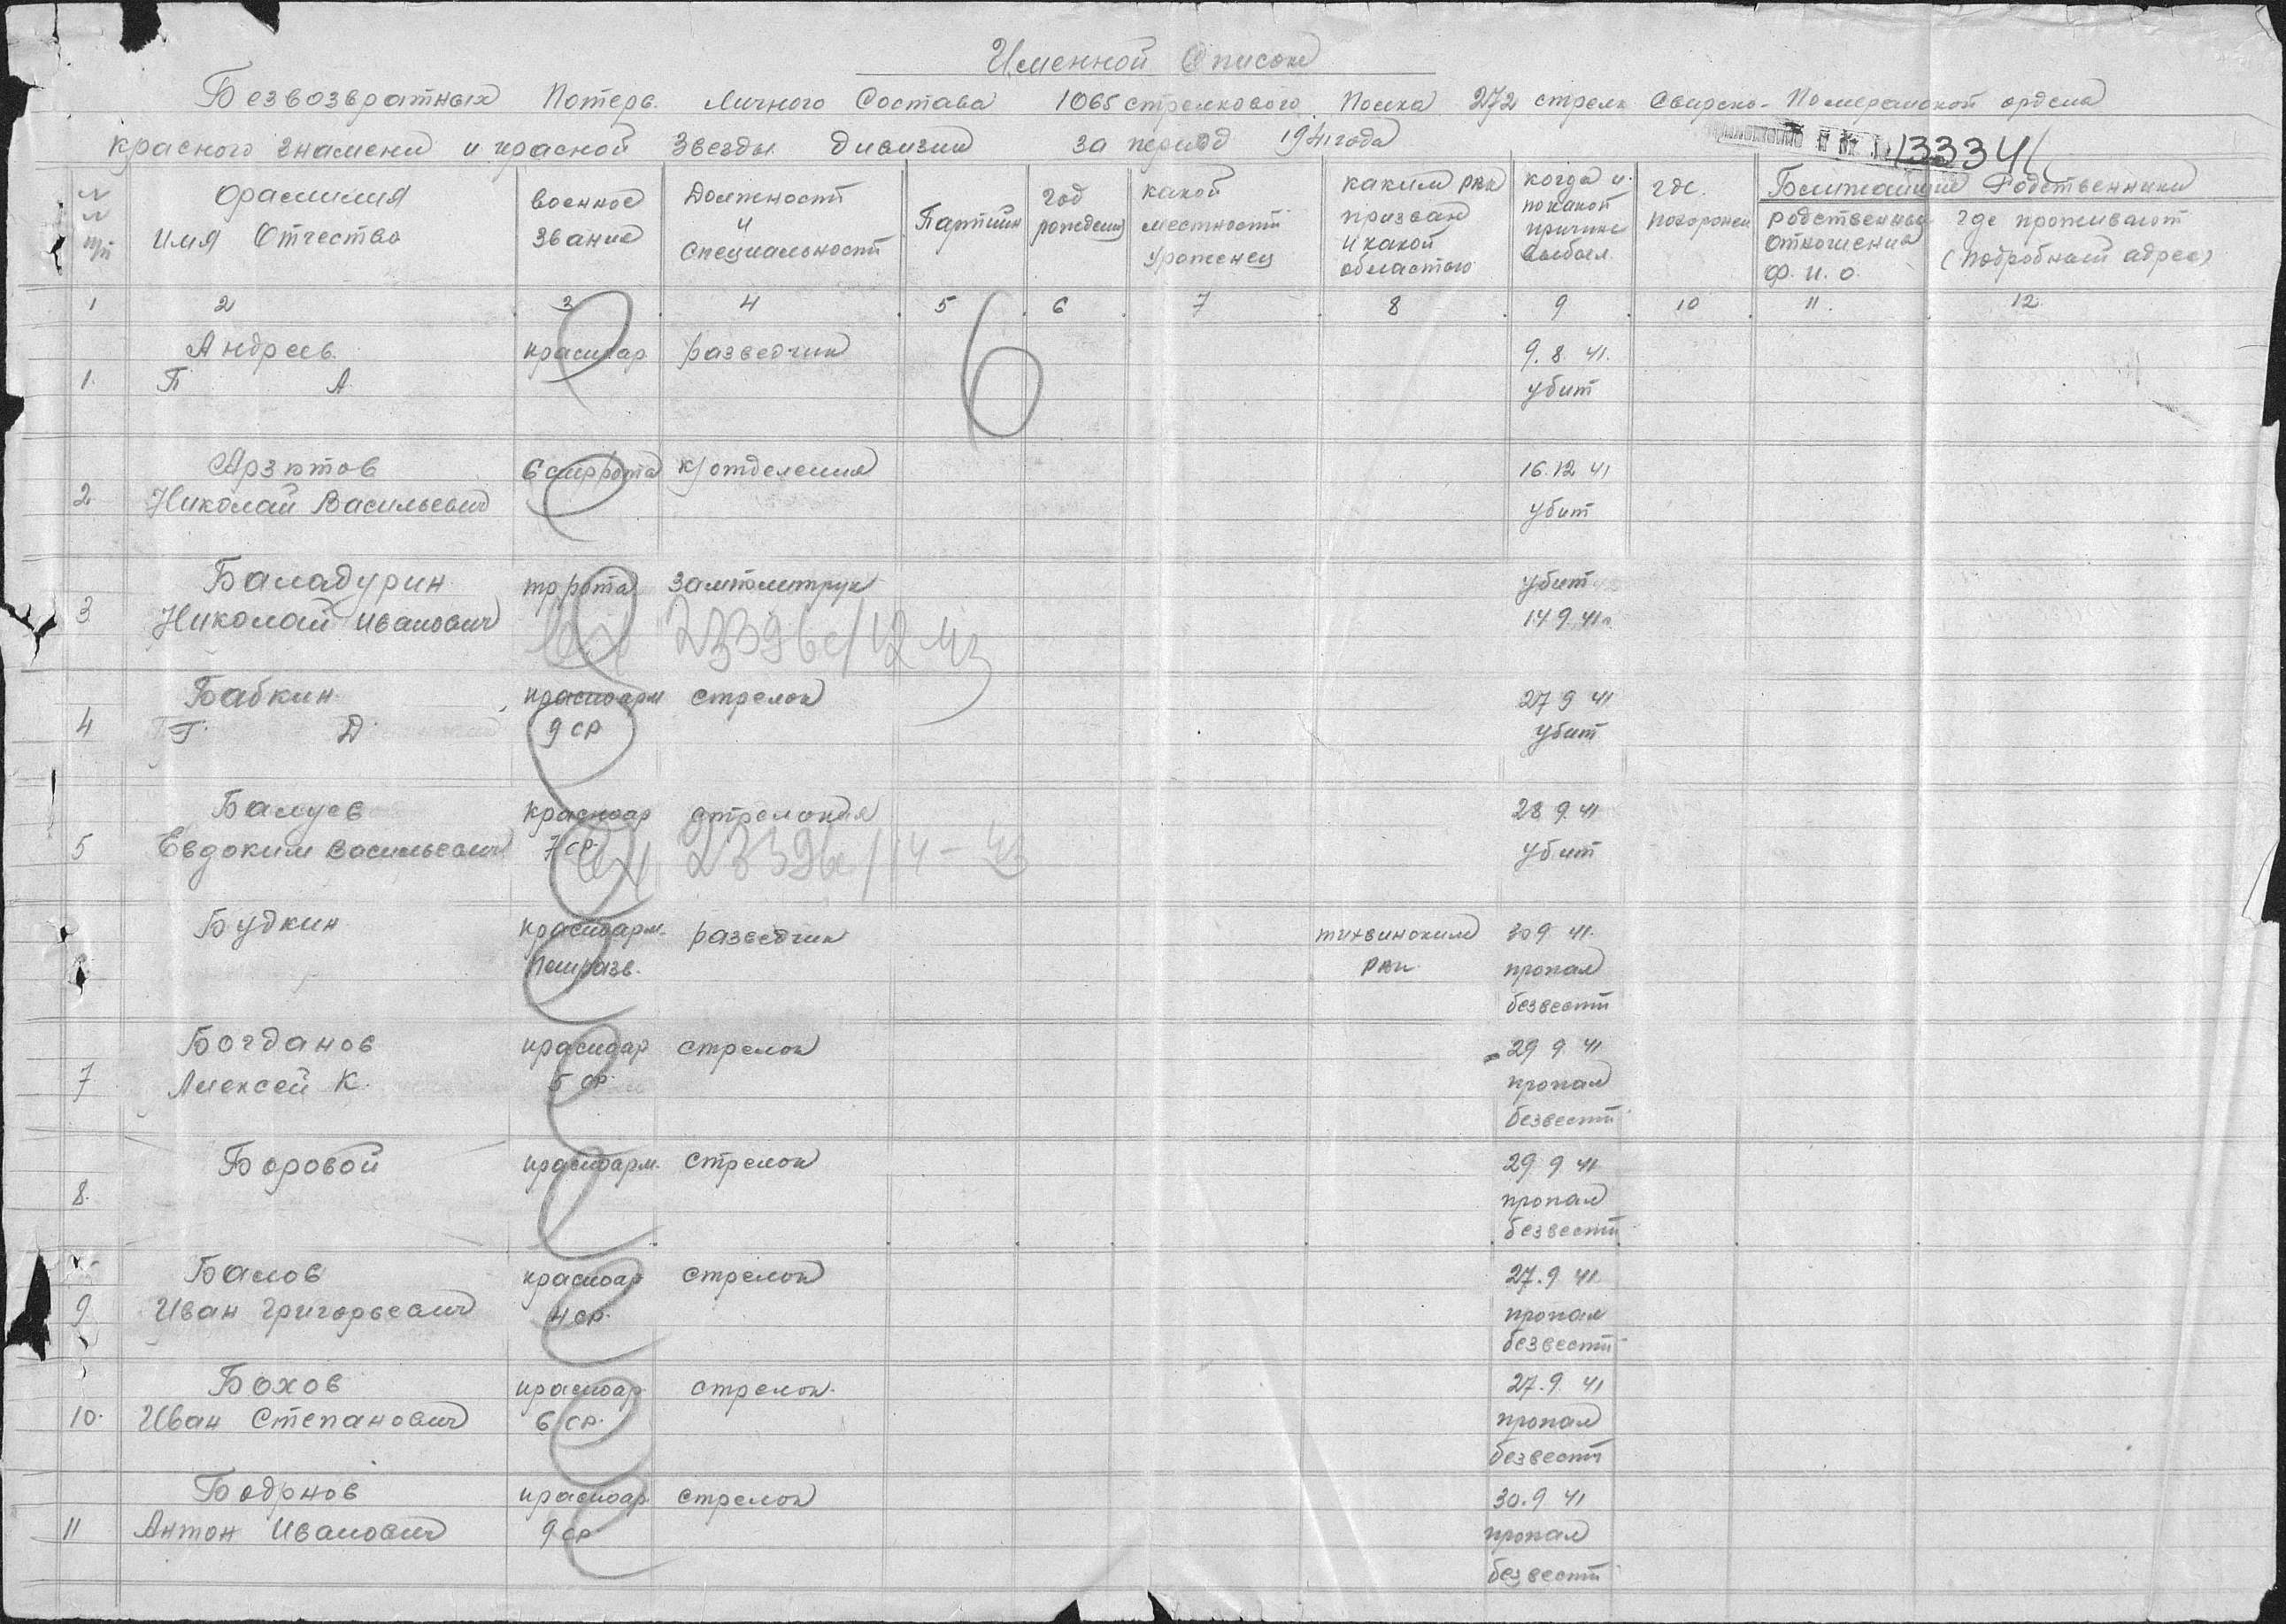 Именной Список
Безвозвратных Потерь Личного Состава 1065 стрелкового Полка 272 стрелк Свирско-Померанской ордена
красного знамени и красной Звезды дивизии за период 1941 года
13334
№ № п/п
Фамилия
Имя Отчество
военное
звание
Должность
и
специальность
Партийн
год
рождения
какой
местности
уроженец
каким РВК
призван
и какой
областью
когда и
по какой
причине
выбыл
где
похоронен
Ближайшие Родственники
родственные
отношения
Ф. И. О.
где проживают
(подробный адрес)
1 2 3 4 5 6 7 8 9 10 11 12
Андреев красноар разведчик 9. 8. 41.
1. П А убит
6
Арзютов 6 стр рота к/отделения 16.12 41
2 Николай Васильевич убит
Баладурин тр рота замполитрук убит
3 Николай Иванович 14 9. 41г.
Вх 23396с/12 43
Бабкин красноарм стрелок 27 9 41
4 Г. Д. 9 ср убит
Балуев красноар стрелок 28 9. 41
5 Евдоким Васильевич 7 ср. убит
Вх 23396с/14-43
Будкин красноарм. разведчик тихвинским 30 9. 41.
пешразв. РВК пропал
безвести
Богданов красноар стрелок 29 9. 41
7 Алексей К. 5 ср. пропал
безвести
Боровой красноарм. стрелок 29 9 41
8. пропал
безвести
Балов красноар стрелок 27.9 41.
9 Иван Григорьевич 4 ср. пропал
безвести
Бохов красноар стрелок. 27.9 41
10. Иван Степанович 6 ср. пропал
безвести
Бодрнов красноар стрелок 30.9 41
11 Антон Иванович 9 ср пропал
безвести